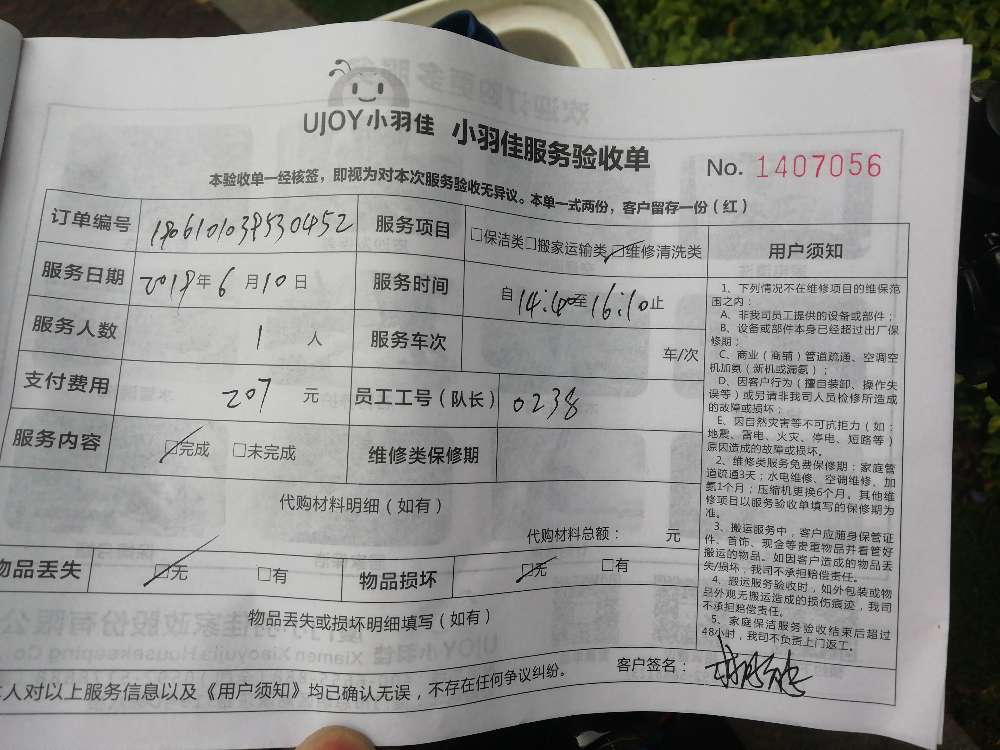 UJOY小羽佳 小羽佳服务验收单 No. 1407056
本验收单一经核签，即视为对本次服务验收无异议。本单一式两份，客户留存一份（红）
订单编号 服务项目 □保洁类□搬家运输类□维修清洗类 用户须知
服务日期 2018年6月10日 服务时间 自14:40至16:10止
服务人数 1人 服务车次 车/次
支付费用 207元 员工工号（队长） 0238
服务内容 □完成 □未完成 维修类保修期
代购材料明细（如有）
代购材料总额： 元
物品丢失 □无 □有 物品损坏 □无 □有
物品丢失或损坏明细填写（如有）
本人对以上服务信息以及《用户须知》均已确认无误，不存在任何争议纠纷。 客户签名：
1、下列情况不在维修项目的维保范
围之内：
A、非我司员工提供的设备或部件；
B、设备或部件本身已经超过出厂保
修期；
C、商业（商铺）管道疏通、空调空
机加氨（新机或漏氨）；
D、因客户行为（擅自装卸、操作失
误等）或另请非我司人员检修所造成
的故障或损坏；
E、因自然灾害等不可抗拒力（如：
地震、雷电、火灾、停电、短路等）
原因造成的故障或损坏。
2、维修类服务免费保修期：家庭管
道疏通3天；水电维修、空调维修、加
氨1个月；压缩机更换6个月。其他维
修项目以服务验收单填写的保修期为
准。
3、搬运服务中，客户应随身保管证
件、首饰、现金等贵重物品并看管好
搬运的物品。如因客户造成的物品丢
失/损坏，我司不承担赔偿责任。
4、搬运服务验收时，如外包装或物
品外观无搬运造成的损伤痕迹，我司
不承担赔偿责任。
5、家庭保洁服务验收结束后超过
48小时，我司不负责上门返工。